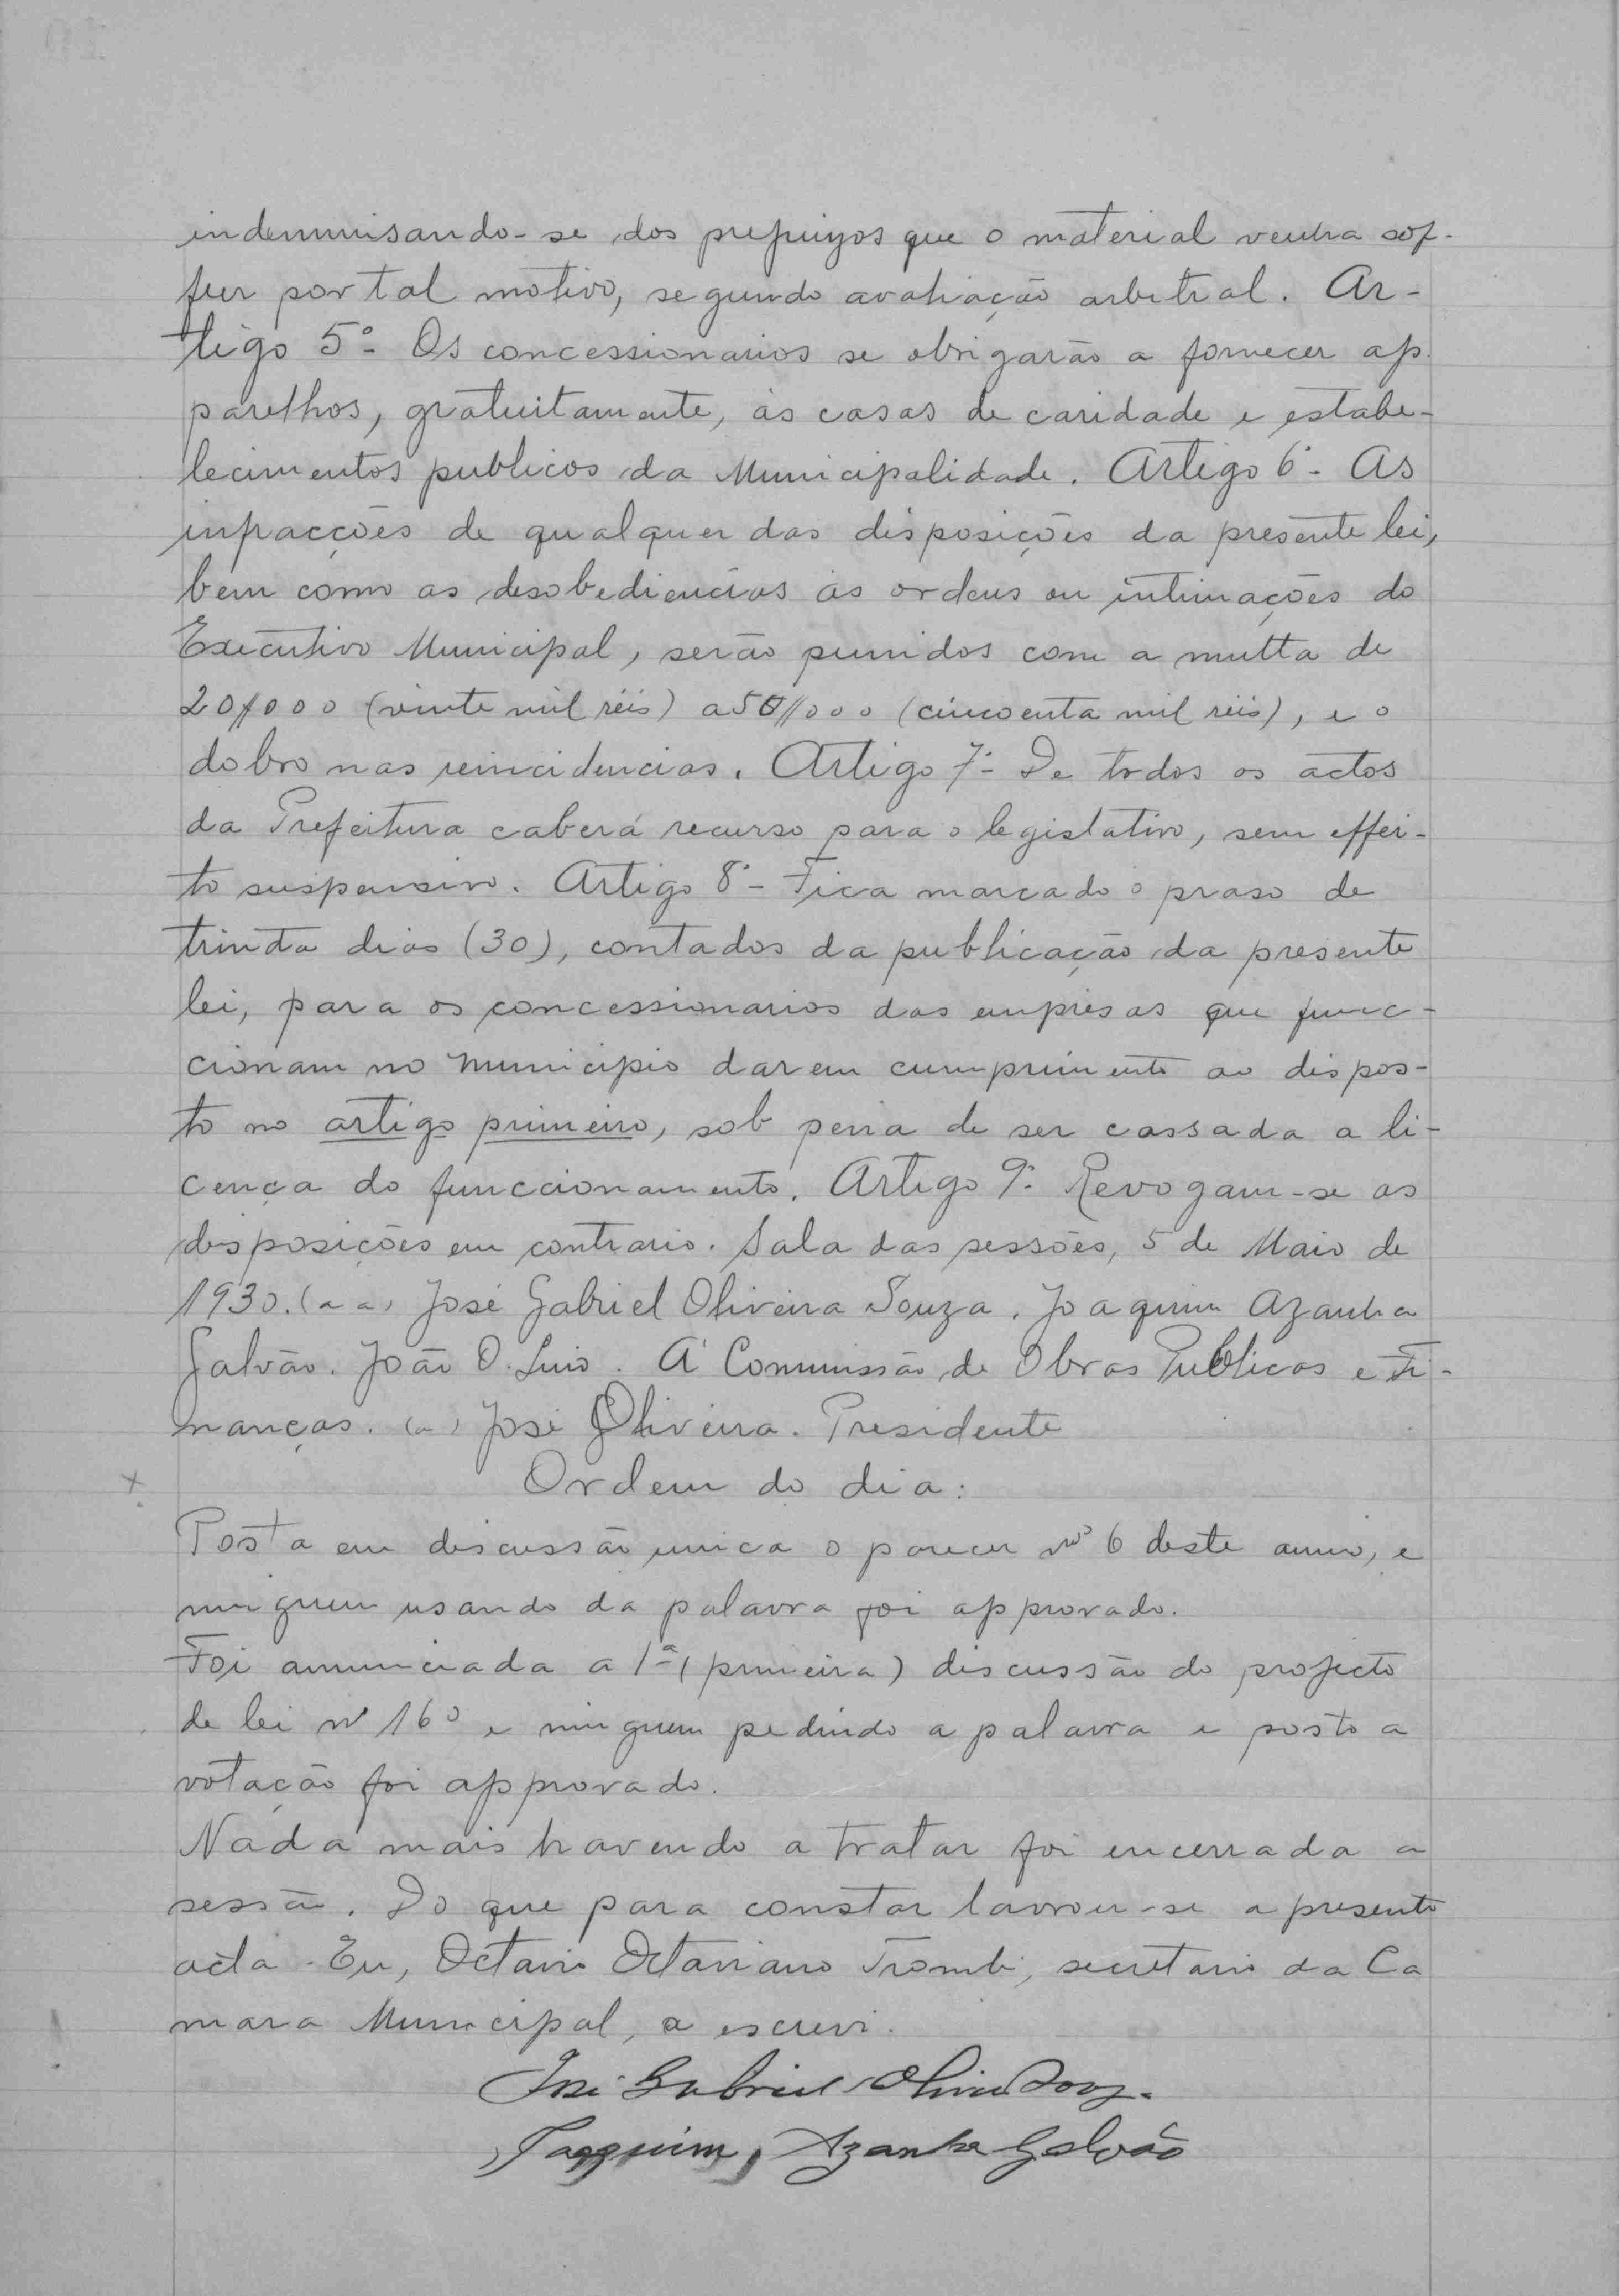 indemnisando-se dos prejuizos que o material venha sof-
frer por tal motivo, segundo avaliação arbitral. Ar-
tigo 5º- Os concessionarios se obrigarão a fornecer ap-
parelhos, gratuitamente, ás casas de caridade e estabe-
lecimentos publicos da Municipalidade. Artigo 6º- As
infracções de qualquer das disposições da presente lei,
bem como as desobediencias ás ordens ou intimações do
Executivo Municipal, serão punidos com a multa de
20$000 (vinte mil réis) a 50$000 (cincoenta mil réis), e o
dobro nas reincidencias. Artigo 7º- De todos os actos
da Prefeitura caberá recurso para o legislativo, sem effei-
to suspensivo. Artigo 8º- Fica marcado o praso de
trinta dias (30), contados da publicação da presente
lei, para os concessionarios das empresas que func-
cionam no municipio darem cumprimento ao dispos-
to no artigo primeiro, sob pena de ser cassada a li-
cença do funccionamento. Artigo 9º- Revogam-se as
disposições em contrario. Sala das sessões, 5 de Maio de
1930. (a a) José Gabriel Oliveira Souza. Joaquim Azanha
Galvão. João O. Luis. Á Commissão de Obras Publicas e Fi-
nanças. (a) José Oliveira. Presidente
Ordem do dia:
Posta em discussão unica o parecer nº 6 deste anno, e
ninguem usando da palavra foi approvado.
Foi annunciada a 1ª (primeira) discussão do projecto
de lei nº 160 e ninguem pedindo a palavra e posto a
votação foi approvado.
Nada mais havendo a tratar foi encerrada a
sessão. Do que para constar lavrou-se a presente
acta. Eu, Octavio Octaviano Trombi, secretario da Ca
mara Municipal, a escrevi.
José Gabriel Oliveira Souza
Joaquim Azanha Galvão